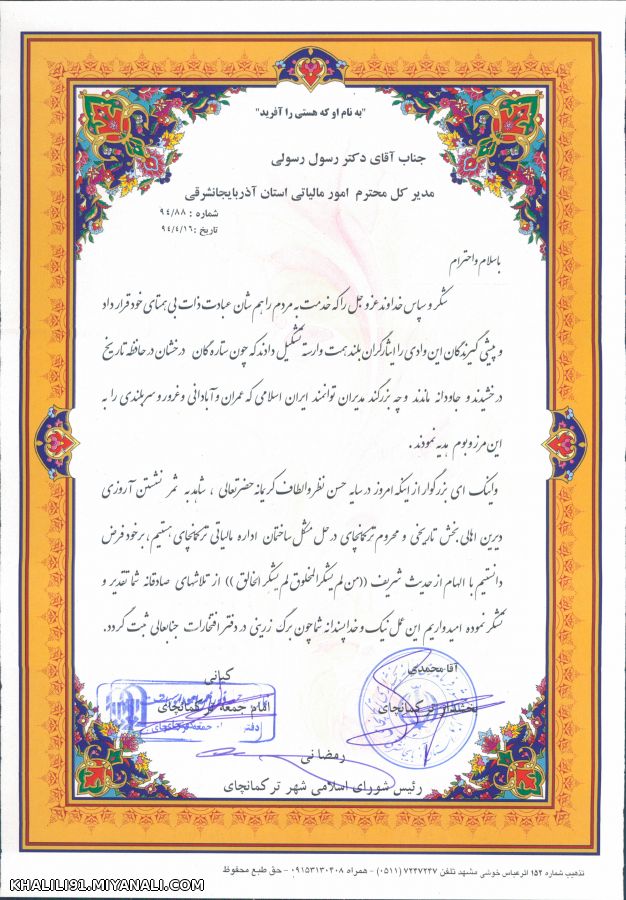 "به نام او که هستی را آفرید"
جناب آقای دکتر رسول رسولی
مدیر کل محترم امور مالیاتی استان آذربایجانشرقی
شماره : ۹۴/۸۸
تاریخ : ۹۴/۴/۱۶
باسلام و احترام
شکر و سپاس خداوند عزوجل را که خدمت به مردم را هم شان عبادت ذات بی همتای خود قرار داد
و پیشی گیرندگان این وادی را ایثارگران بلند همت وارسته تشکیل دادند که چون ستاره گان درخشان در حافظه تاریخ
درخشیدند و جاودانه ماندند و چه بزرگند مدیران توانمند ایران اسلامی که عمران و آبادانی و غرور و سربلندی را به
این مرز و بوم هدیه نمودند .
واینک ای بزرگوار از اینکه امروز در سایه حسن نظر و الطاف کریمانه حضرتعالی ، شاهد به ثمر نشستن آرزوی
دیرین اهالی بخش تاریخی و محروم ترکمانچای در حل مشکل ساختمان اداره مالیاتی ترکمانچای هستیم، بر خود فرض
دانستیم با الهام از حدیث شریف ((من لم یشکر المخلوق لم یشکر الخالق )) از تلاشهای صادقانه شما تقدیر و
تشکر نموده امیدواریم این عمل نیک و خداپسندانه شما چون برگ زرینی در دفتر افتخارات جنابعالی ثبت گردد.
آقا محمدی
بخشدار ترکمانچای
کیانی
امام جمعه ترکمانچای
رمضانی
رئیس شورای اسلامی شهر ترکمانچای
تذهیب شماره ۱۵۲ اثر عباس خوشی مشهد تلفن ۷۲۴۷۲۴۷ (۰۵۱۱) - همراه ۰۹۱۵۳۱۳۰۴۰۸ - حق طبع محفوظ
KHALILI91.MIYANALI.COM